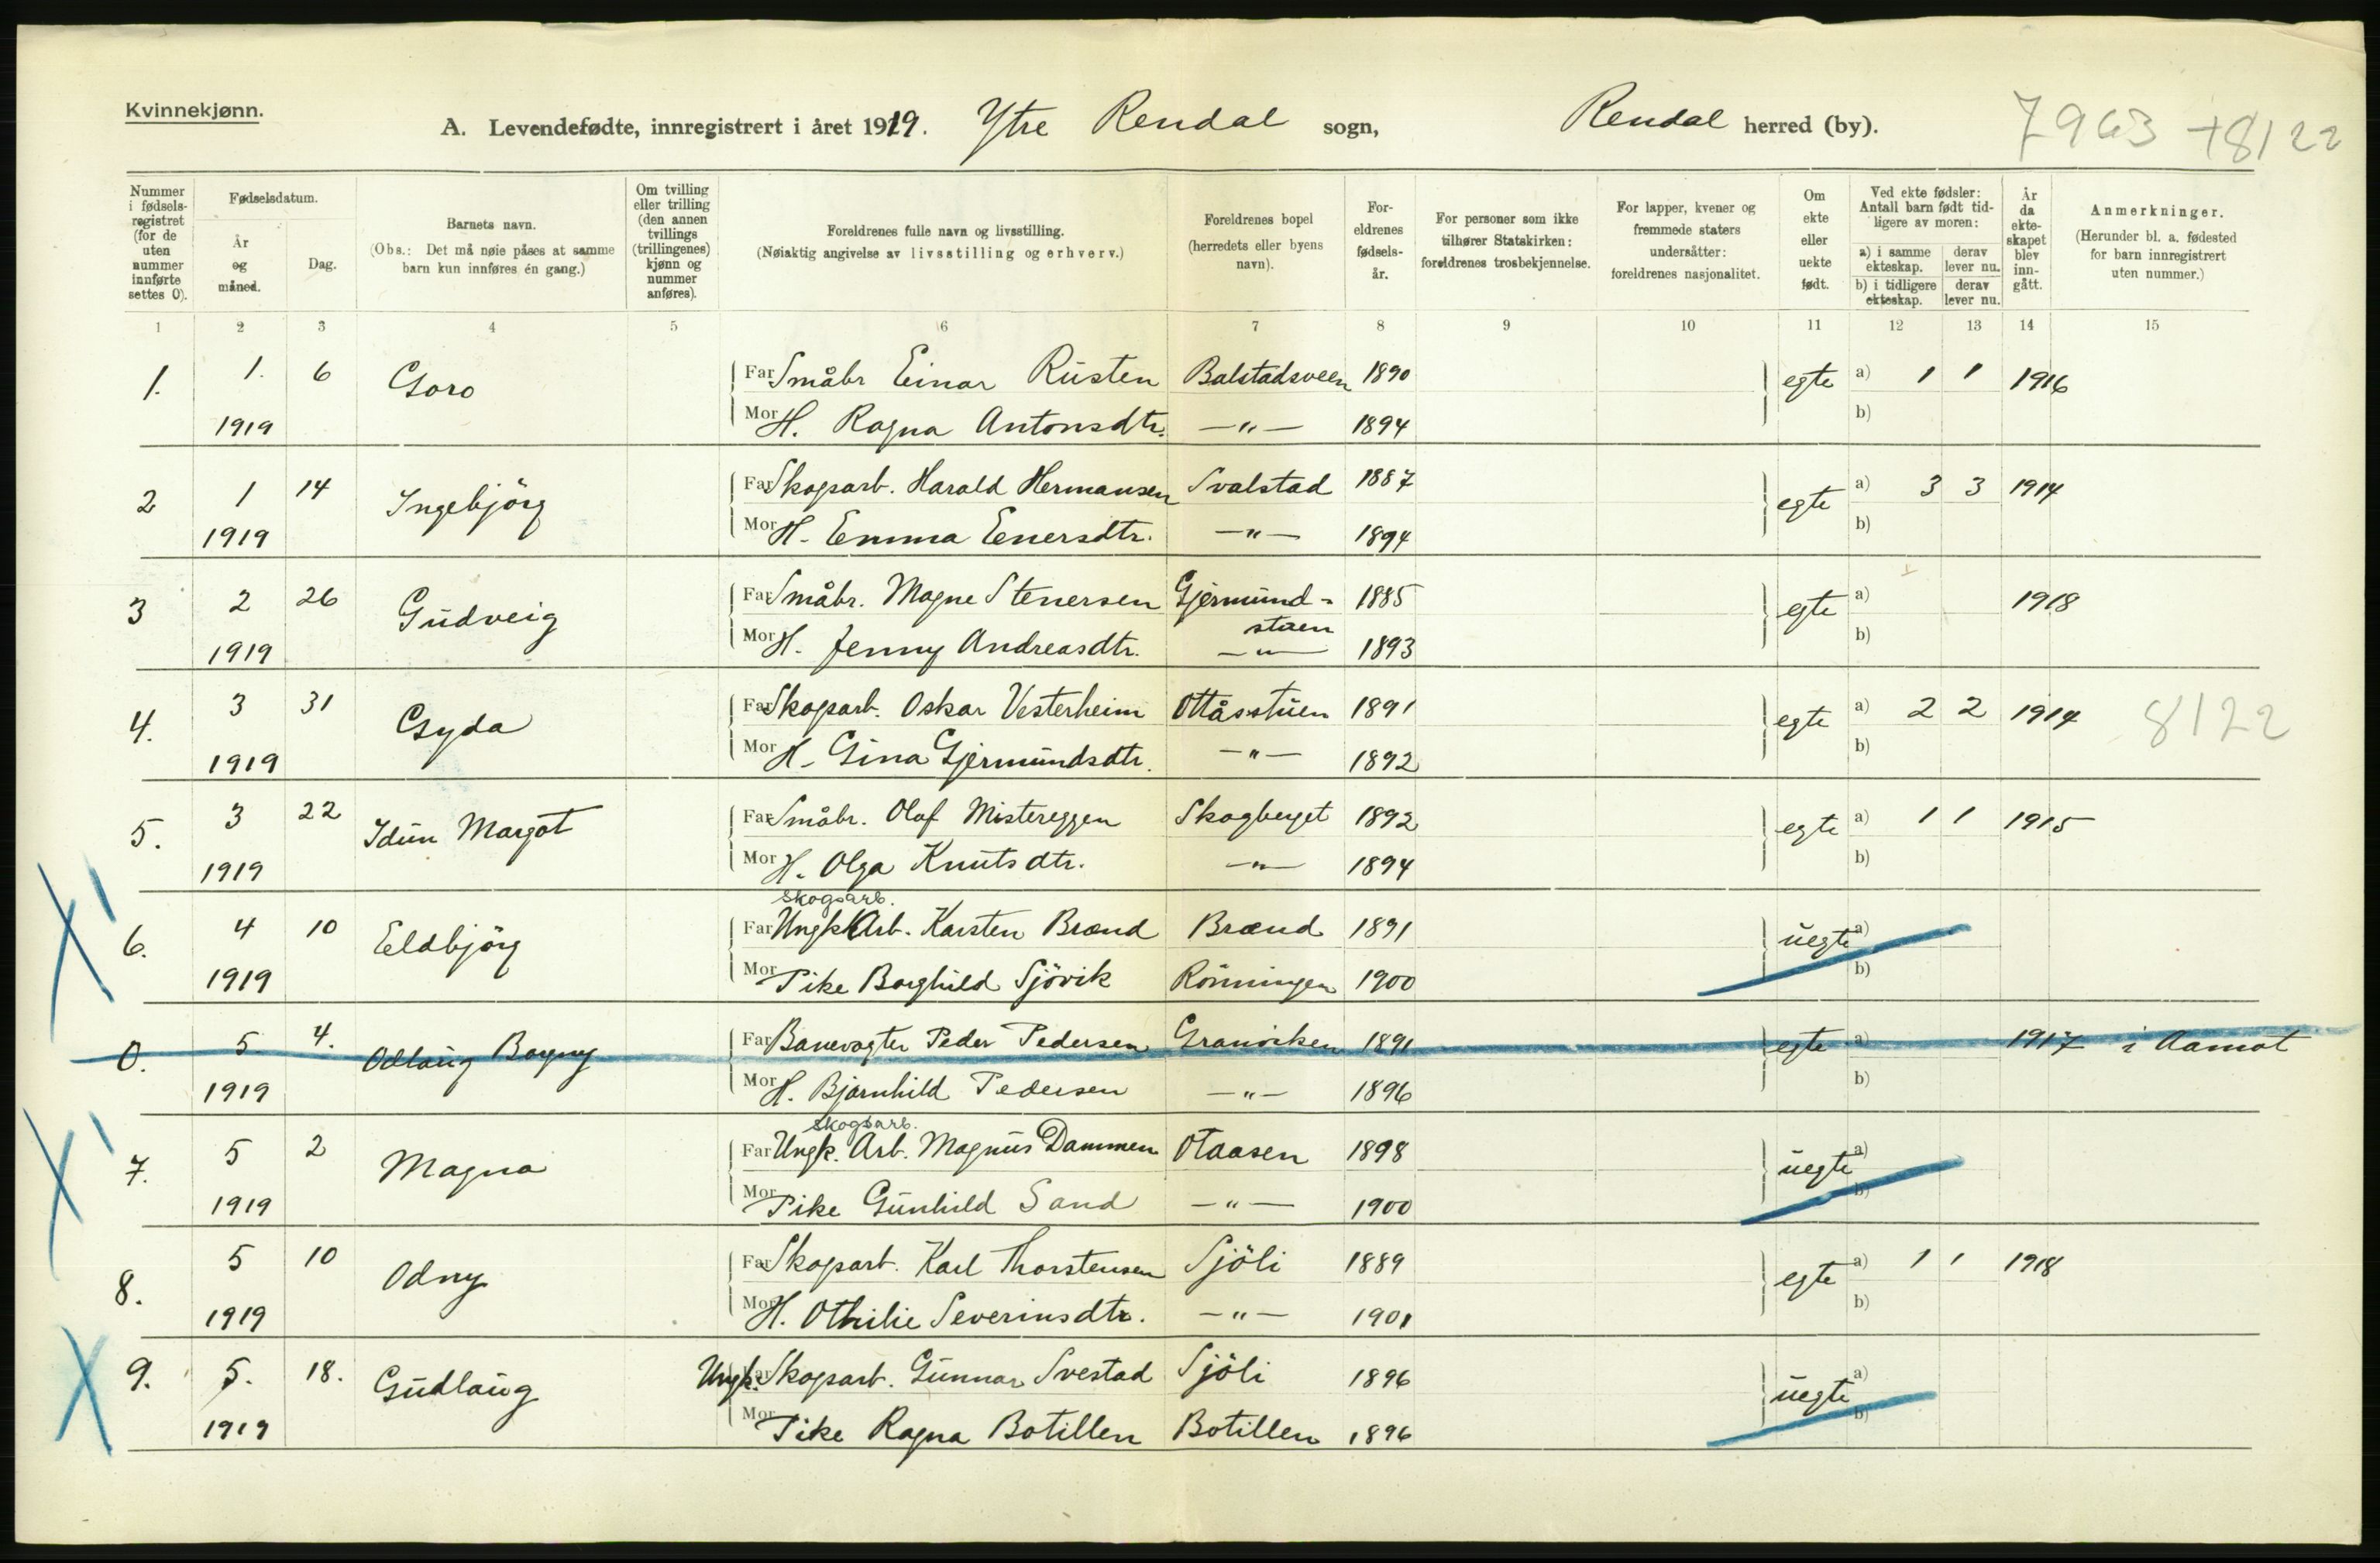 Kvinnekjønn.
A. Levendefødte, innregistrert i året 1919. Ytre Rendal sogn, Rendal herred (by). 7963 +8122
Nummer i fødselsregistret (for de uten nummer innførte settes 0).
Fødselsdatum.
År og måned.
Dag.
Barnets navn.
(Obs.: Det må nøie påses at samme barn kun innføres én gang.)
Om tvilling eller trilling (den annen tvillings (trillingenes) kjønn og nummer anføres).
Foreldrenes fulle navn og livsstilling.
(Nøiaktig angivelse av livsstilling og erhverv.)
Foreldrenes bopel (herredets eller byens navn).
Foreldrenes fødselsår.
For personer som ikke tilhører Statskirken: foreldrenes trosbekjennelse.
For lapper, kvener og fremmede staters undersåtter: foreldrenes nasjonalitet.
Om ekte eller uekte født.
Ved ekte fødsler: Antall barn født tidligere av moren:
a) i samme ekteskap. derav lever nu.
b) i tidligere ekteskap. derav lever nu.
År da ekteskapet blev inngått.
Anmerkninger.
(Herunder bl. a. fødested for barn innregistrert uten nummer.)
1 2 3 4 5 6 7 8 9 10 11 12 13 14 15
1. 1. 6 Goro Far Småbr Einar Rusten Balstadsveen 1890 egte a) 1 1 1916
1919 Mor H. Ragna Antonsdtr. —"— 1894 b)
2 1 14 Ingebjörg Far Skogsarb. Harald Hermansen Svalstad 1887 egte a) 3 3 1914
1919 Mor H. Emma Enersdtr. —"— 1894 b)
3 2 26 Gudveig Far Småbr. Magne Stenersen Gjermund- 1885 egte a) 1918
stuen
1919 Mor H. Jenny Andreasdtr. —"— 1893 b)
4. 3 31 Gyda Far Skogsarb. Oskar Vesterheim Ottåsstuen 1891 egte a) 2 2 1914 8122
1919 Mor H. Gina Gjermundsdtr. —"— 1892 b)
5. 3 22 Idun Margot Far Småbr. Olaf Mistereggen Skogberget 1892 egte a) 1 1 1915
1919 Mor H. Olga Knutsdtr. —"— 1894 b)
skogsarb.
6. 4 10 Eldbjörg Far Ungk Arb. Karsten Brænd Brænd 1891 uegte a)
1919 Mor Pike Borghild Sjövik Rönningen 1900 b)
0. 5 4. Odlaug Bogny Far Banevogter Peder Pedersen Granviken 1891 egte a) 1917 i Aamot
1919 Mor H. Bjarnhild Pedersen —"— 1896 b)
skogsarb.
7. 5 2 Magna Far Ungk. Arb. Magnus Dammen Otaasen 1898 uegte a)
1919 Mor Pike Gunhild Sand —"— 1900 b)
8. 5 10 Odny Far Skogsarb. Karl Thorstensen Sjöli 1889 egte a) 1 1 1918
1919 Mor H. Othilie Severinsdtr. —"— 1901 b)
9. 5. 18. Gudlaug Ungk. Far Skogsarb. Gunnar Svestad Sjöli 1896 uegte a)
1919 Mor Pike Ragna Botillen Botillen 1896 b)